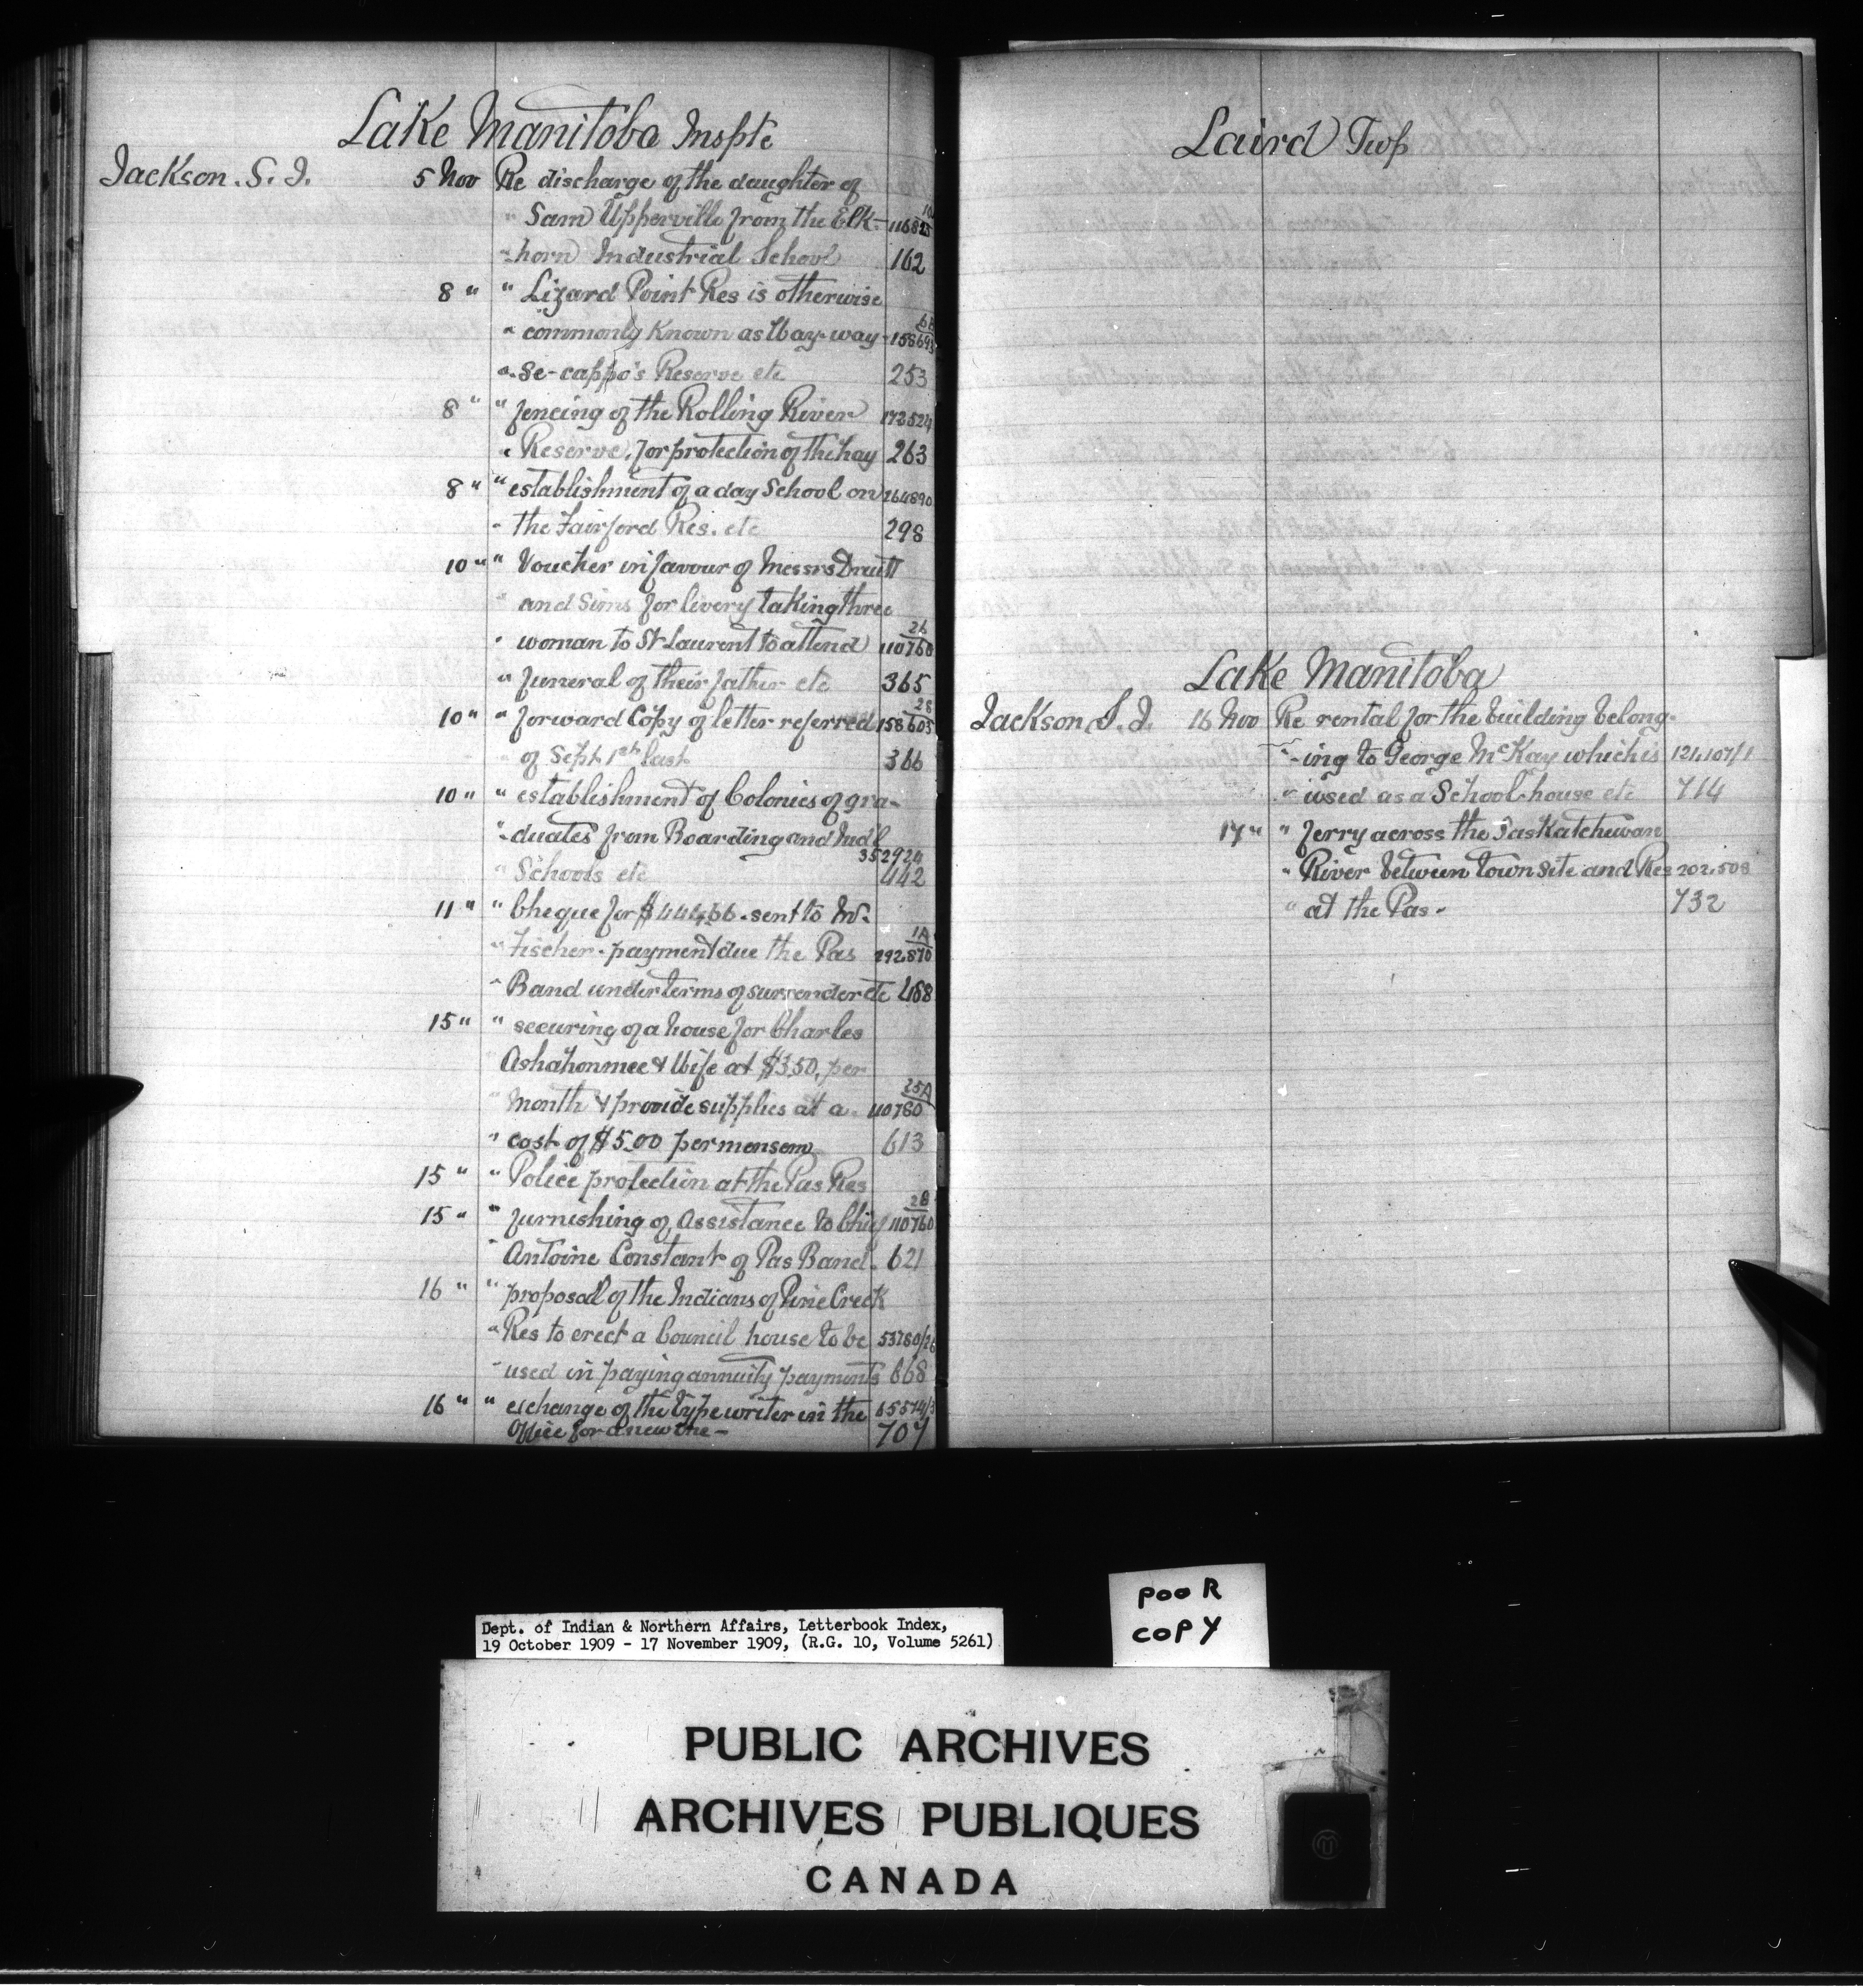 Lake Manitoba Inspte
Jackson. S. J. 5 Nov Re discharge of the daughter of
" Sam Upperville from the Elk- 116825
-horn Industrial School 162
8 " " Lizard Point Res is otherwise
" commonly known as Way-way- 158693
"-se-cappo's Reserve etc 253
8 " " fencing of the Rolling River 172524
" Reserve, for protection of the hay 263
8 " " establishment of a day School on 264890
" the Fairford Res. etc 298
10 " " Voucher in favour of Messrs
" and Sims for livery taking three
26
" woman to St Laurent to attend 110760
" funeral of their father etc 365
28
10 " " forward Copy of letter referred 158603
" of Sept 1st last 366
10 " " establishment of Colonies of gra-
"-duates from Boarding and Indl
352924
" Schools etc 442
11 " " Cheque for $444.66. sent to W.
1A
" Fischer - payment due the Pas 292870
" Band under terms of surrender etc 488
15 " " securing of a house for Charles
Ashahonmee & Wife at $3.50, per
25A
" Month & provide supplies at a 110780
" cost of $5.00 per mensem 613
15 " " Police protection at the Pas Res
28
15 " " furnishing of Assistance to Chief 110760
" Antoine Constant of Pas Band. 621
16 " " proposal of the Indians of Pine Creek
" Res to erect a Council house to be 53780/26
" used in paying annuity payments 668
16 " " exchange of the typewriter in the 65574/3
Office for a new one - 707
Laird Twp
Lake Manitoba
Jackson S. J. 16 Nov Re rental for the building belong-
"-ing to George McKay which is 121,107/1
" used as a School-house etc 714
17 " " ferry across the Saskatchewan
" River between townsite and Res 202.508
" at the Pas - 732
POOR
COPY
Dept. of Indian & Northern Affairs, Letterbook Index,
19 October 1909 - 17 November 1909, (R.G. 10, Volume 5261)
PUBLIC ARCHIVES
ARCHIVES PUBLIQUES
CANADA